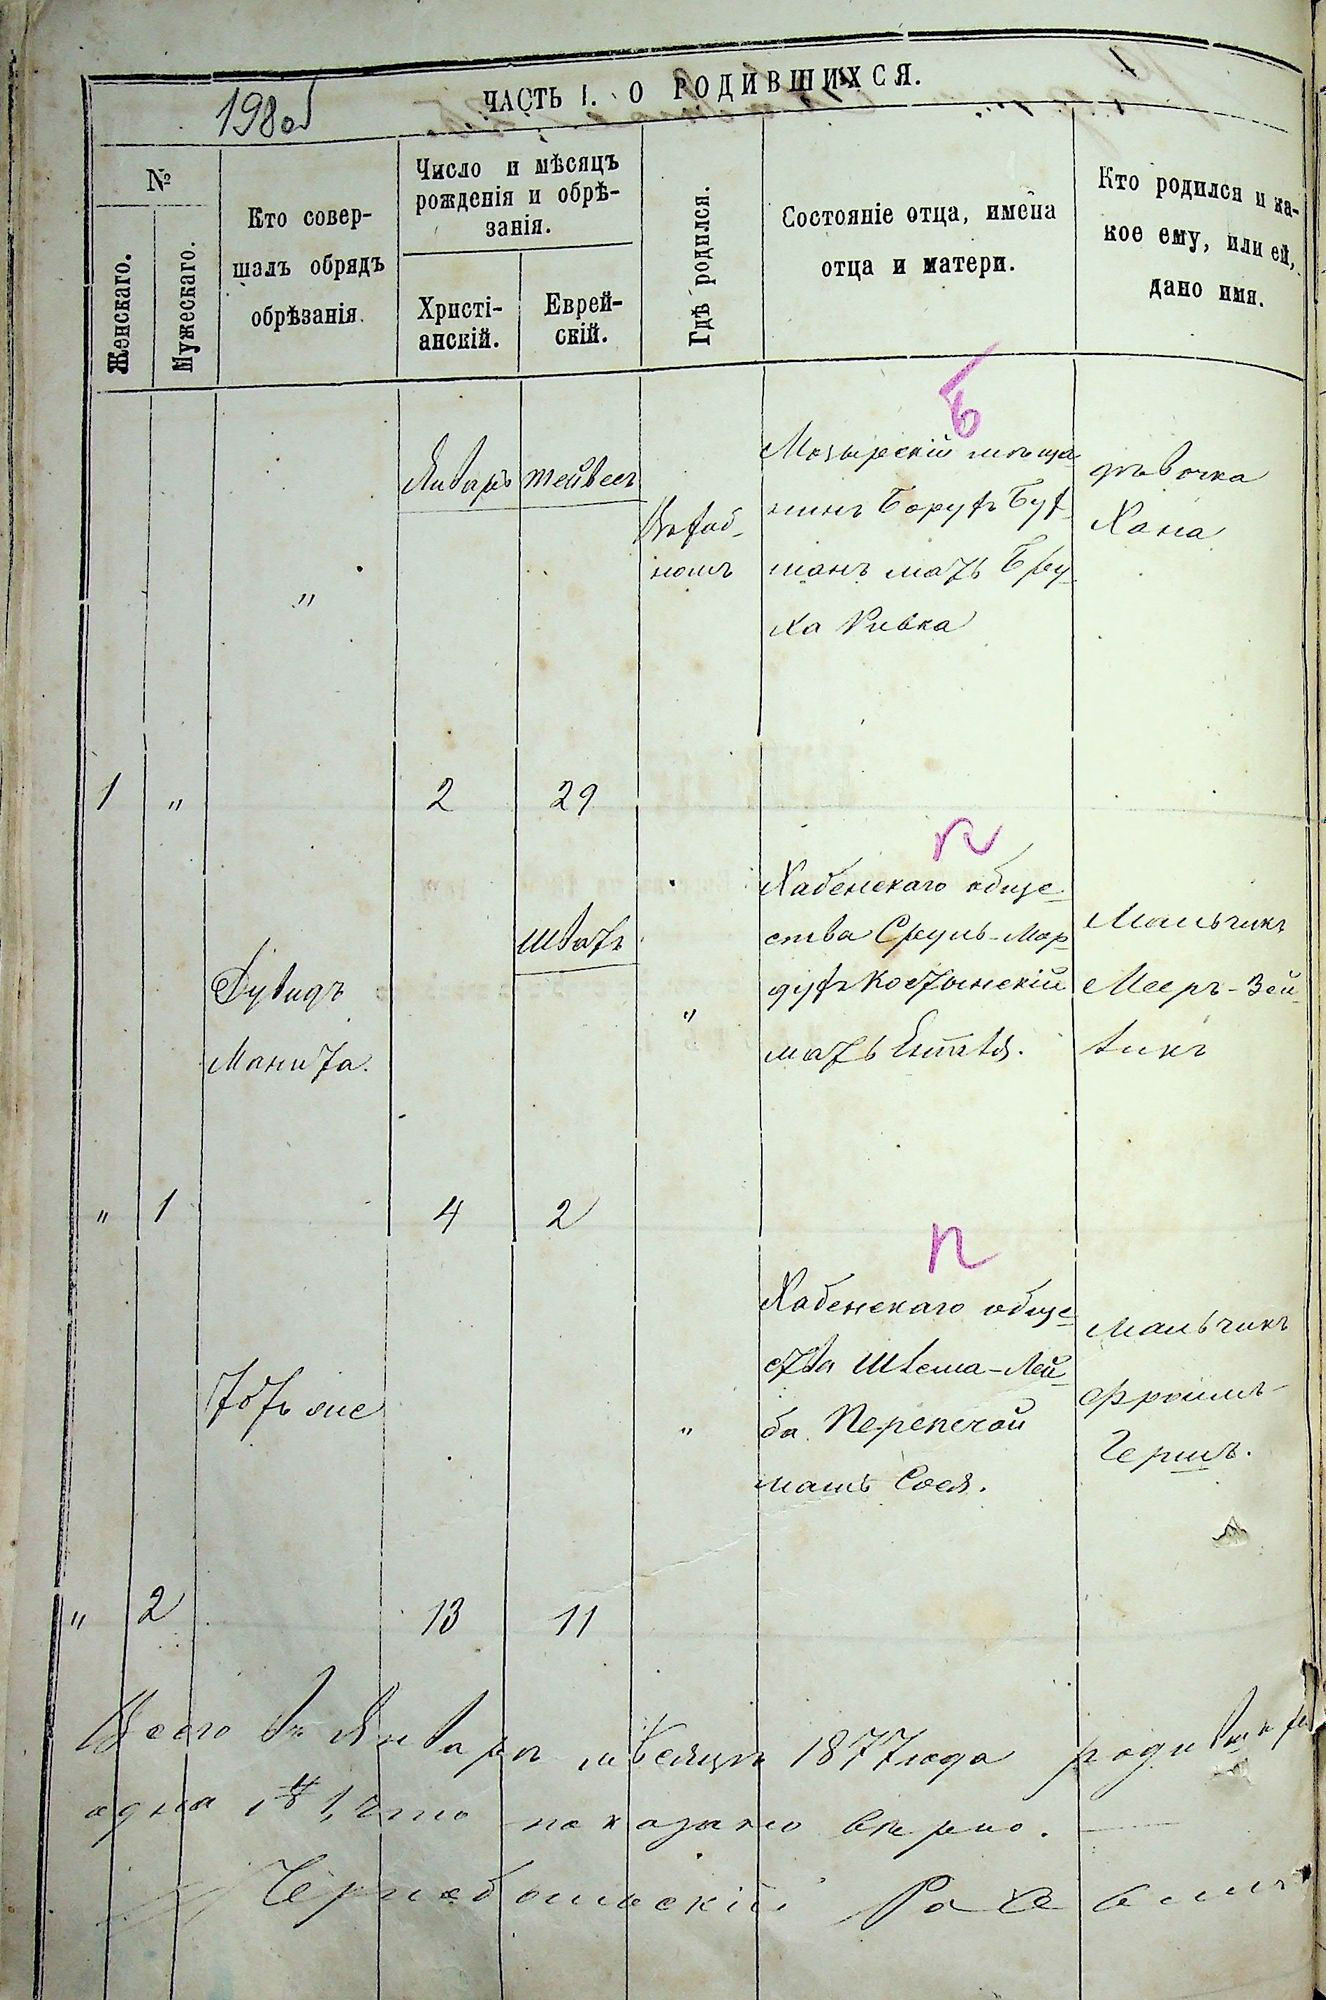 198об
ЧАСТЬ I. О РОДИВШИХСЯ.
№
Женскаго.
Мужескаго.
Кто совер-
шалъ обрядъ
обрѣзанія.
Число и мѣсяцъ
рожденія и обрѣ-
занія.
Христі-
анскій.
Еврей-
скій.
Гдѣ родился.
Состояніе отца, имена
отца и матери.
Кто родился и ка-
кое ему, или ей,
дано имя.
Б
"
Январь
тейвесъ
Въ Хаб-
номъ
Мозырскій мѣща
нинъ Борухъ Бух-
манъ мать Бру-
ха Ривка
дѣвочка
Хана
1 " 2 29
п
Дувидъ
Манита.
шватъ
"
Хабенскаго обще-
ства Сруль-Мор
духъ Костынскій
мать Ентля.
Мальчикъ
Мееръ-Зей-
викъ
" 1 4 2
п
тотъ же
"
Хабенскаго обще-
ства Шлема-Лей-
ба Перепечай
мать Сося.
мальчикъ
Фроимъ-
Гершъ.
" 2 13 11
Всего въ Январѣ мѣсяцѣ 1877 года
одна № 1, что показано вѣрно.
Чернобыльскій Раввинъ